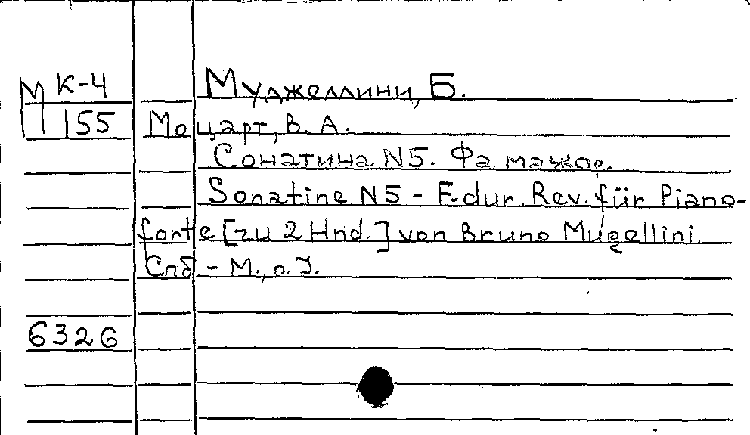 М К-4 Муджеллини, Б.
1155 Моцарт, В. А.
Сонатина N5. Фа мажор.
Sonatine N5 - F-dur. Rev. für Piano-
forte [zu 2 Hnd.] von Bruno Mugellini.
Спб - М.,
6326